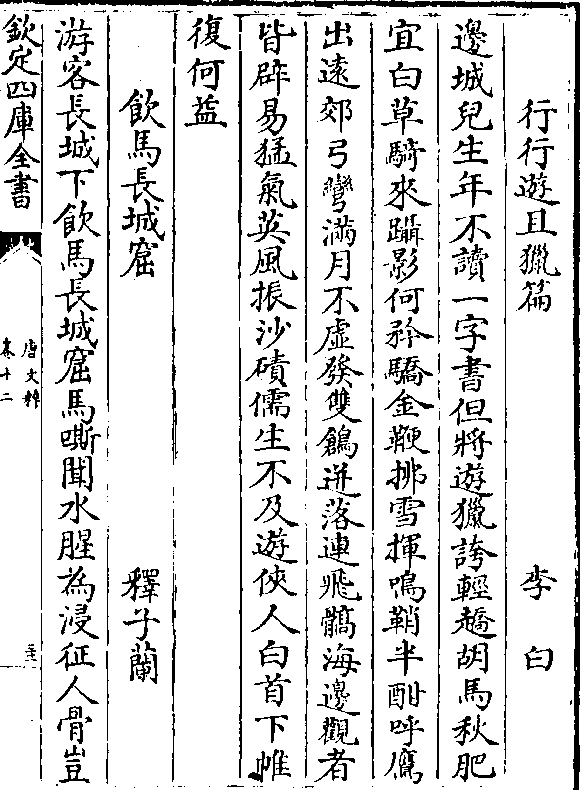 行行遊且獵篇 李白
邊城兒生年不讀一字書但將遊獵誇輕趫胡馬秋肥
宜白草騎來躡影何矜驕金鞭拂雪揮鳴鞘半酣呼鷹
出遠郊弓彎滿月不虛發雙鶬迸落連飛髇海邊觀者
皆辟易猛氣英風振沙磧儒生不及遊俠人白首下帷
復何益
飲馬長城窟 釋子蘭
游客長城下飲馬長城窟馬嘶聞水腥為浸征人骨豈
欽定四庫全書
唐文粹
卷十二